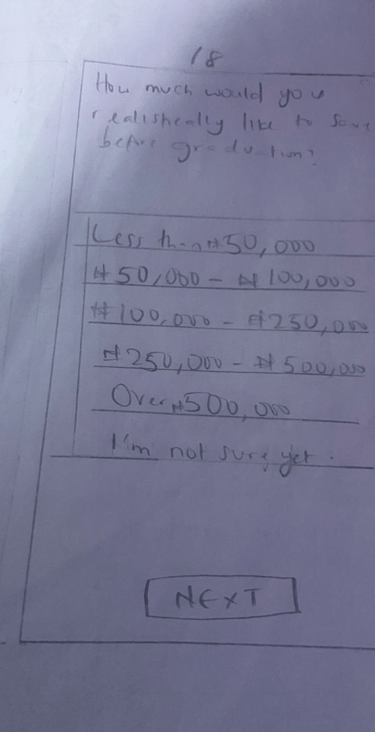 18
How much would you
realistically like to save
before graduation?
Less than ₦50,000
₦50,000 - ₦100,000
₦100,000 - ₦250,000
₦250,000 - ₦500,000
Over ₦500,000
I'm not sure yet.
NEXT